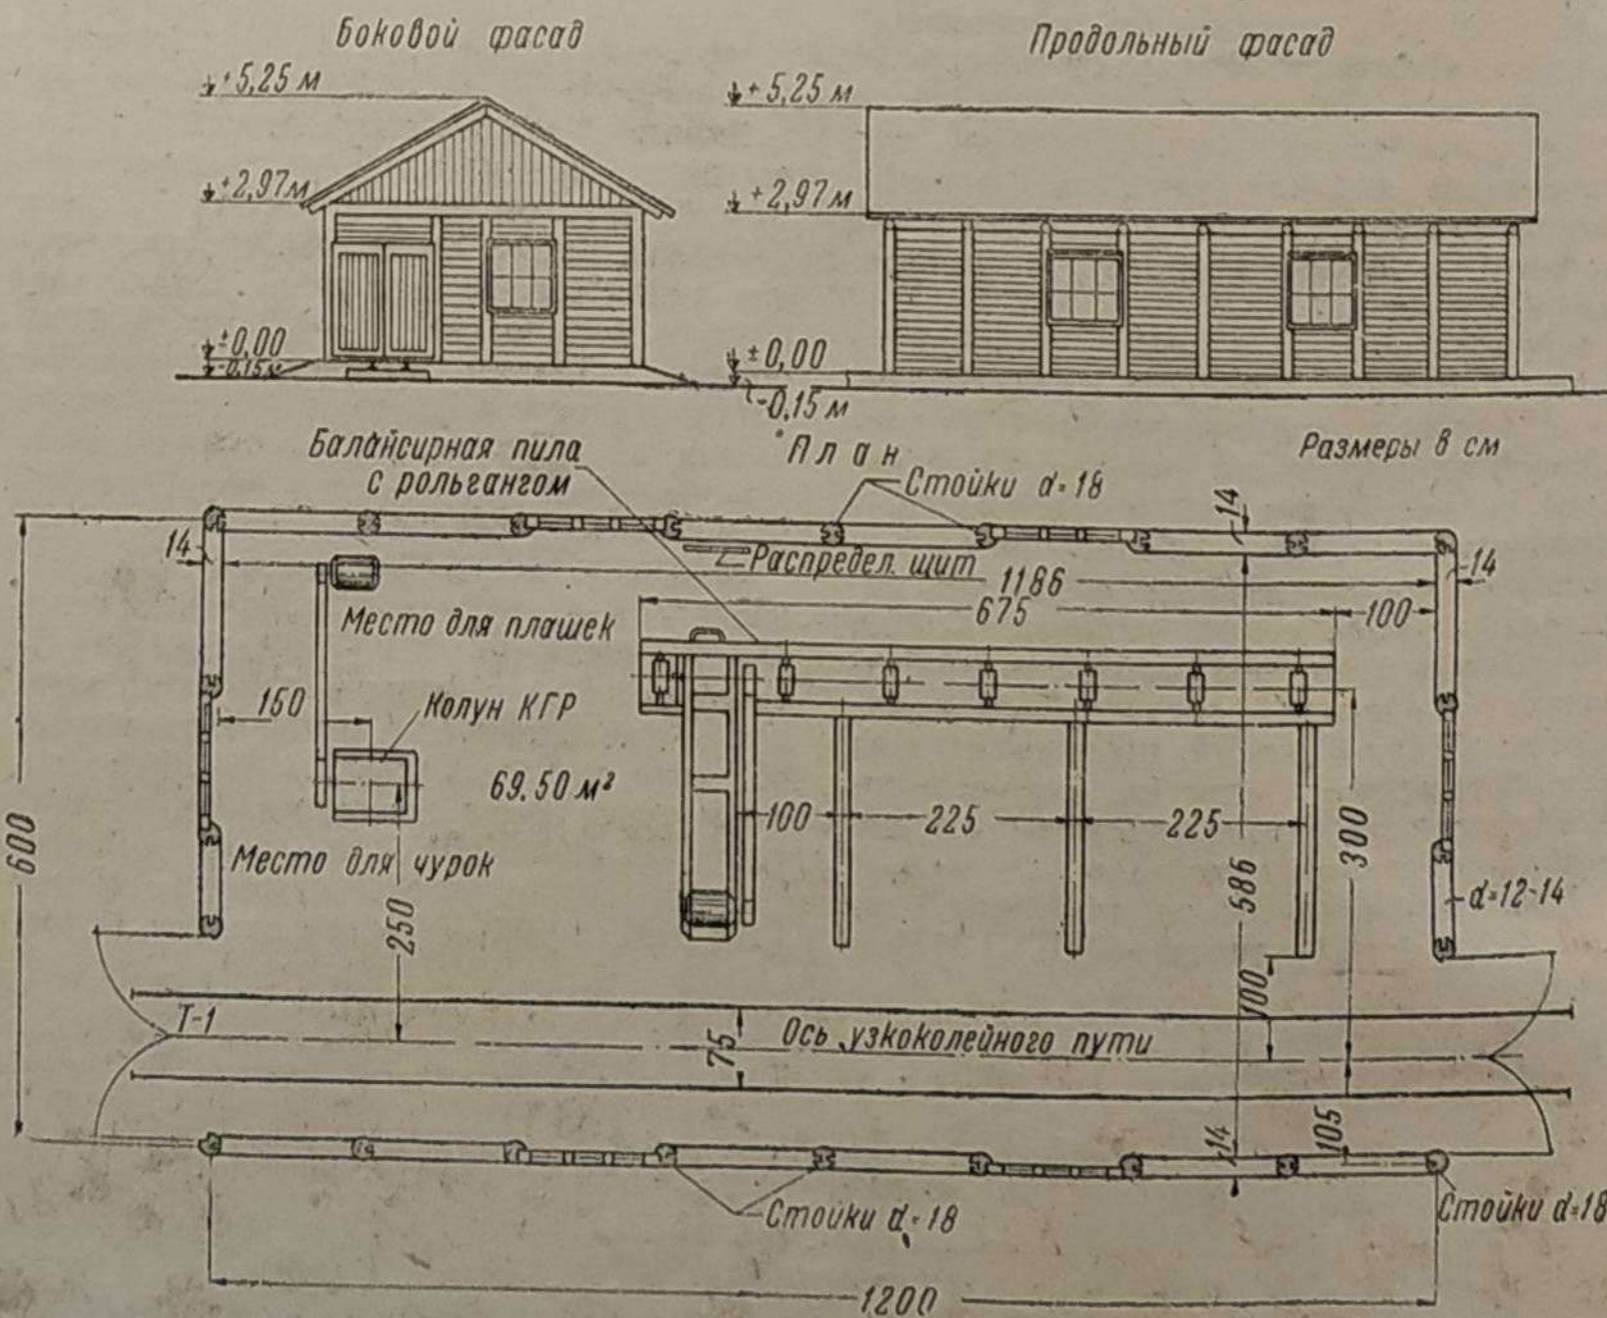 Боковой фасад
Продольный фасад
+5,25 м
+5,25 м
+2,97 м
+2,97 м
±0,00
-0,15 м
±0,00
-0,15 м
Балансирная пила
с рольгангом
План
Размеры в см
Стойки d=18
14
14
Распредел. щит
1186
14
675
100
Место для плашек
150
Колун КГР
69.50 м²
100
225
225
300
600
Место для чурок
586
d=12-14
250
100
Т-1
75
Ось узкоколейного пути
14
105
Стойки d=18
Стойки d=18
1200